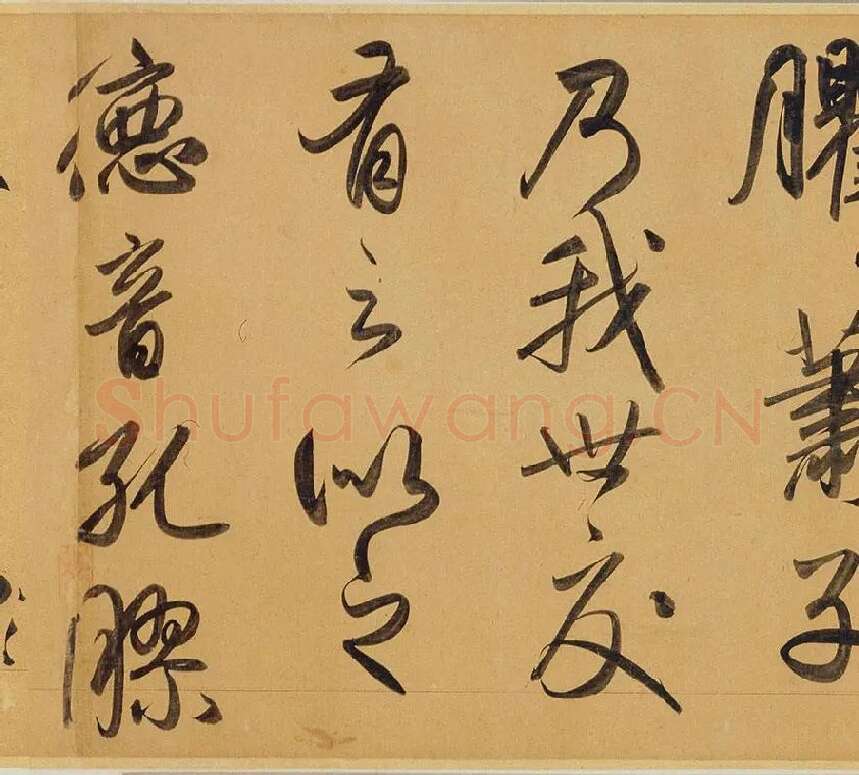 臞蕭子
乃我世友
有之似之
德音孔膠
Shufawang.CN